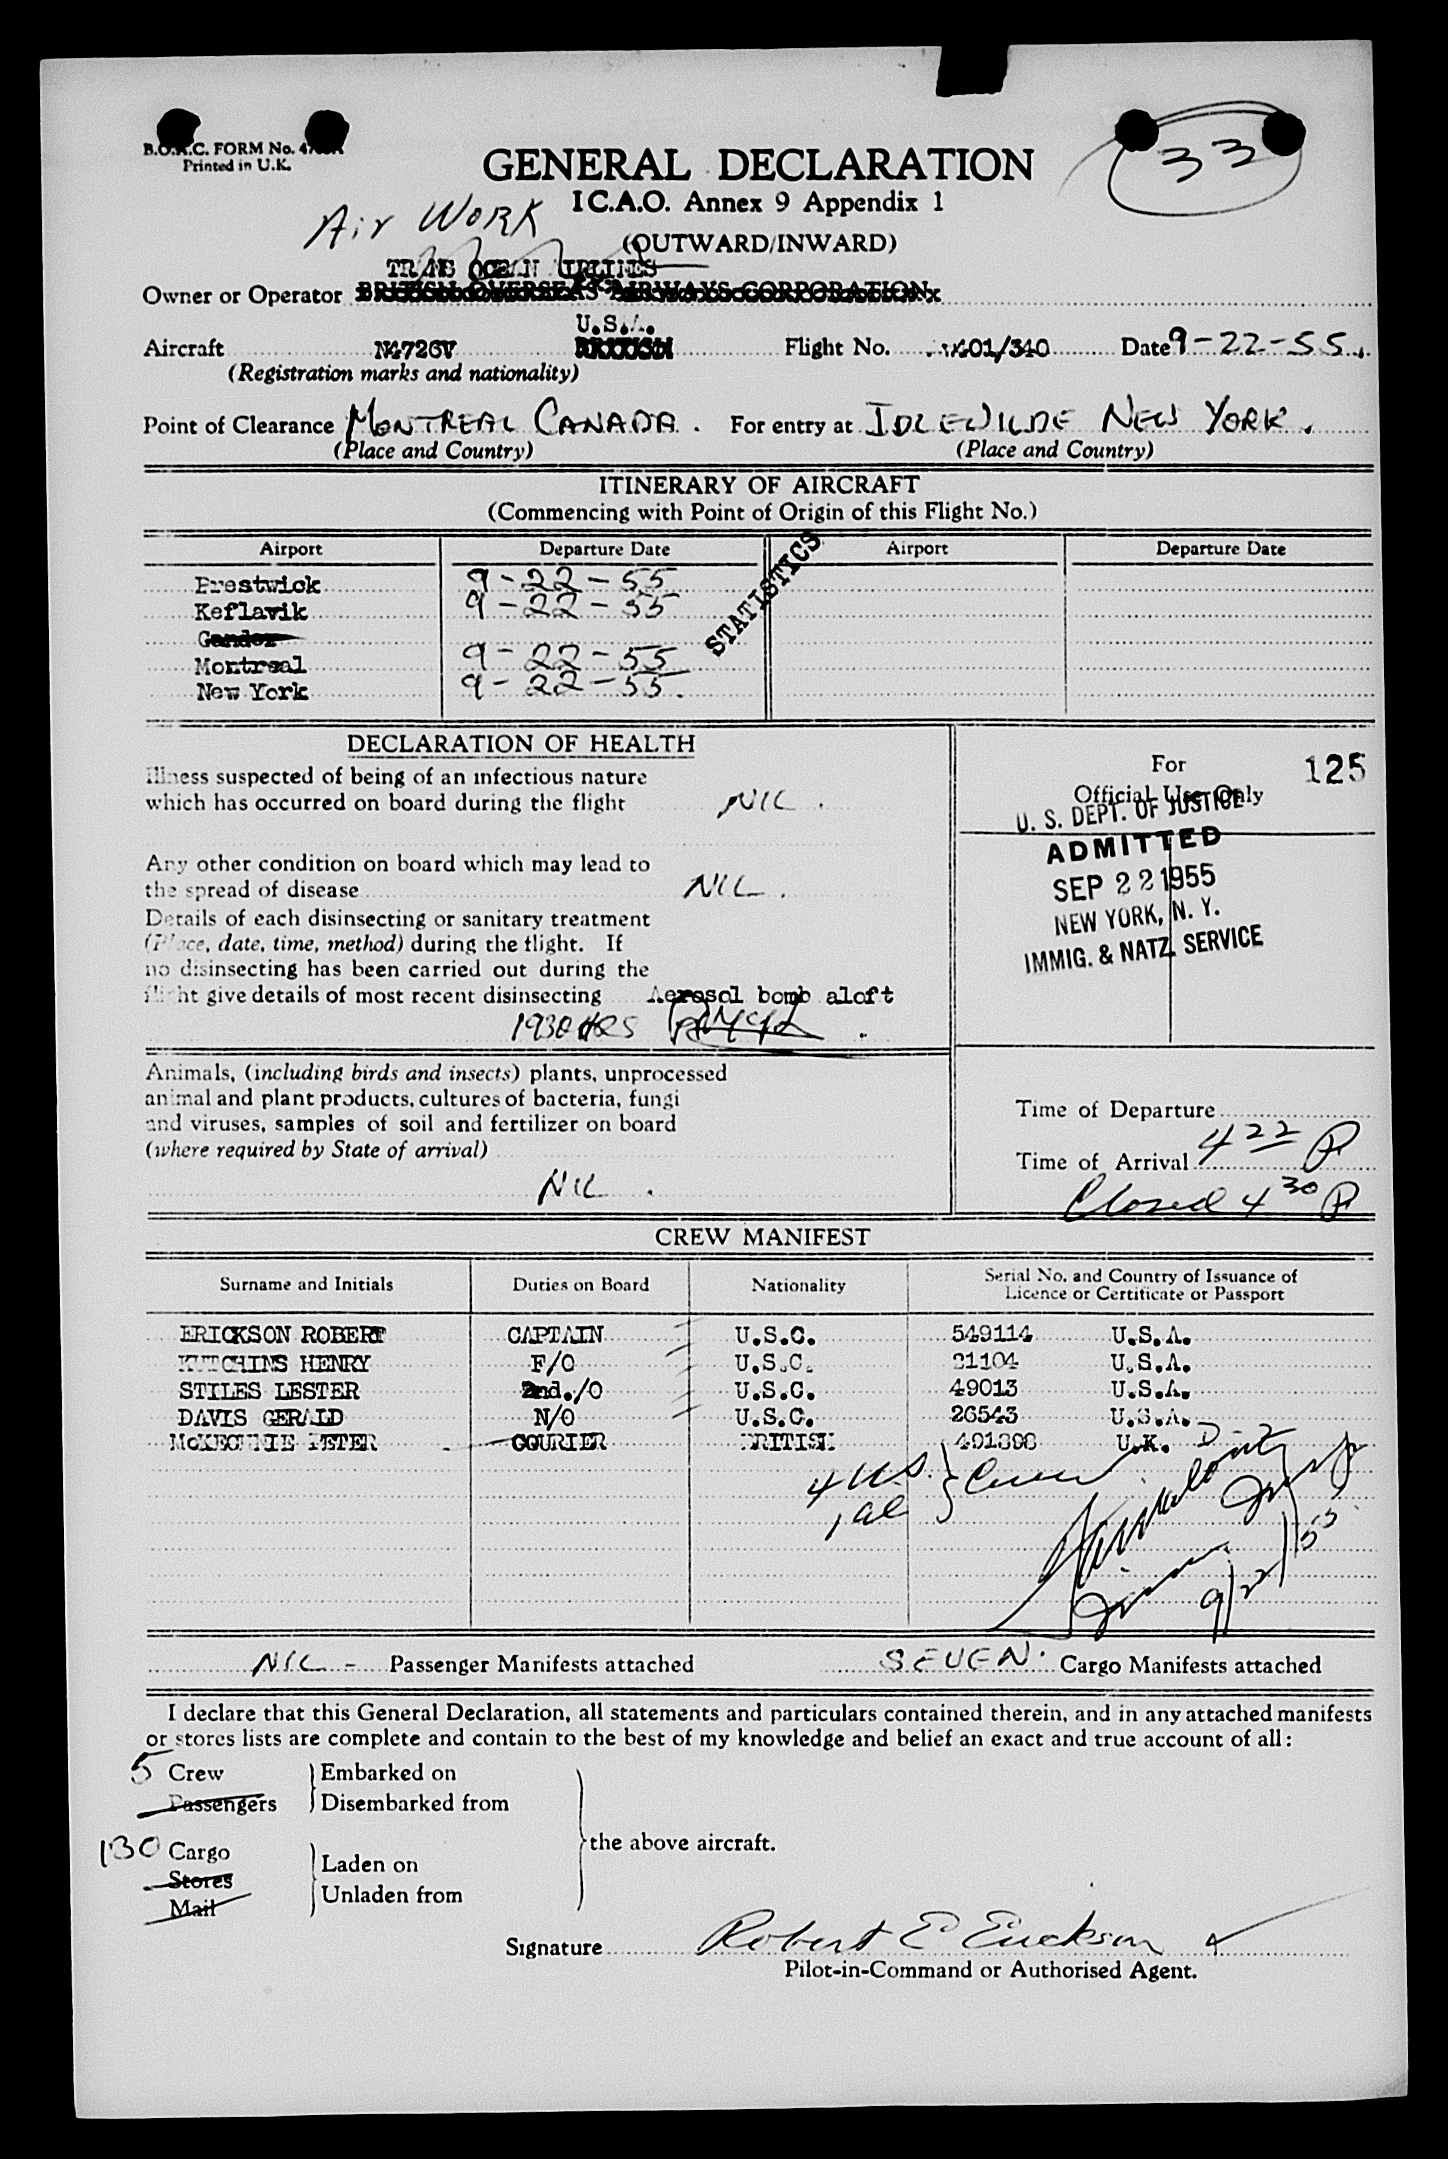 B.O.A.C. FORM No.
Printed in U.K.
33
GENERAL DECLARATION
I C.A.O. Annex 9 Appendix 1
Air Work
(OUTWARD/INWARD)
TRANS OCEAN AIRLINES
Owner or Operator BRITISH OVERSEAS AIRWAYS CORPORATION
U.S.A.
Aircraft N4726V BRITISH Flight No. 401/340 Date 9-22-55.
(Registration marks and nationality)
Point of Clearance MONTREAL CANADA. For entry at IDLEWILDE NEW YORK.
(Place and Country) (Place and Country)
ITINERARY OF AIRCRAFT
(Commencing with Point of Origin of this Flight No.)
Airport Departure Date Airport Departure Date
STATISTICS
Prestwick 9-22-55
Keflavik 9-22-55
Gander
Montreal 9-22-55
New York 9-22-55.
DECLARATION OF HEALTH
For 125
Official Use Only
Illness suspected of being of an infectious nature
which has occurred on board during the flight NIL.
U. S. DEPT. OF JUSTICE
ADMITTED
SEP 22 1955
NEW YORK, N. Y.
IMMIG. & NATZ. SERVICE
Any other condition on board which may lead to
the spread of disease NIL.
Details of each disinsecting or sanitary treatment
(Place, date, time, method) during the flight. If
no disinsecting has been carried out during the
flight give details of most recent disinsecting Aerosol bomb aloft
1930 HRS
Animals, (including birds and insects) plants, unprocessed
animal and plant products, cultures of bacteria, fungi
and viruses, samples of soil and fertilizer on board
(where required by State of arrival)
NIL.
Time of Departure
Time of Arrival 4 22 P
Closed 4 30 P
CREW MANIFEST
Surname and Initials Duties on Board Nationality Serial No. and Country of Issuance of
Licence or Certificate or Passport
ERICKSON ROBERT CAPTAIN U.S.C. 549114 U.S.A.
HUTCHINS HENRY F/O U.S.C. 21104 U.S.A.
STILES LESTER 2nd./O U.S.C. 49013 U.S.A.
DAVIS GERALD N/O U.S.C. 26543 U.S.A.
McKECHNIE PETER COURIER BRITISH 491898 U.K.
4 U.S. } Crew
1 al
9/22/55
NIL - Passenger Manifests attached SEVEN. Cargo Manifests attached
I declare that this General Declaration, all statements and particulars contained therein, and in any attached manifests
or stores lists are complete and contain to the best of my knowledge and belief an exact and true account of all:
5 Crew } Embarked on
Passengers } Disembarked from
the above aircraft.
130 Cargo } Laden on
Stores
Mail } Unladen from
Signature Robert E Erickson
Pilot-in-Command or Authorised Agent.